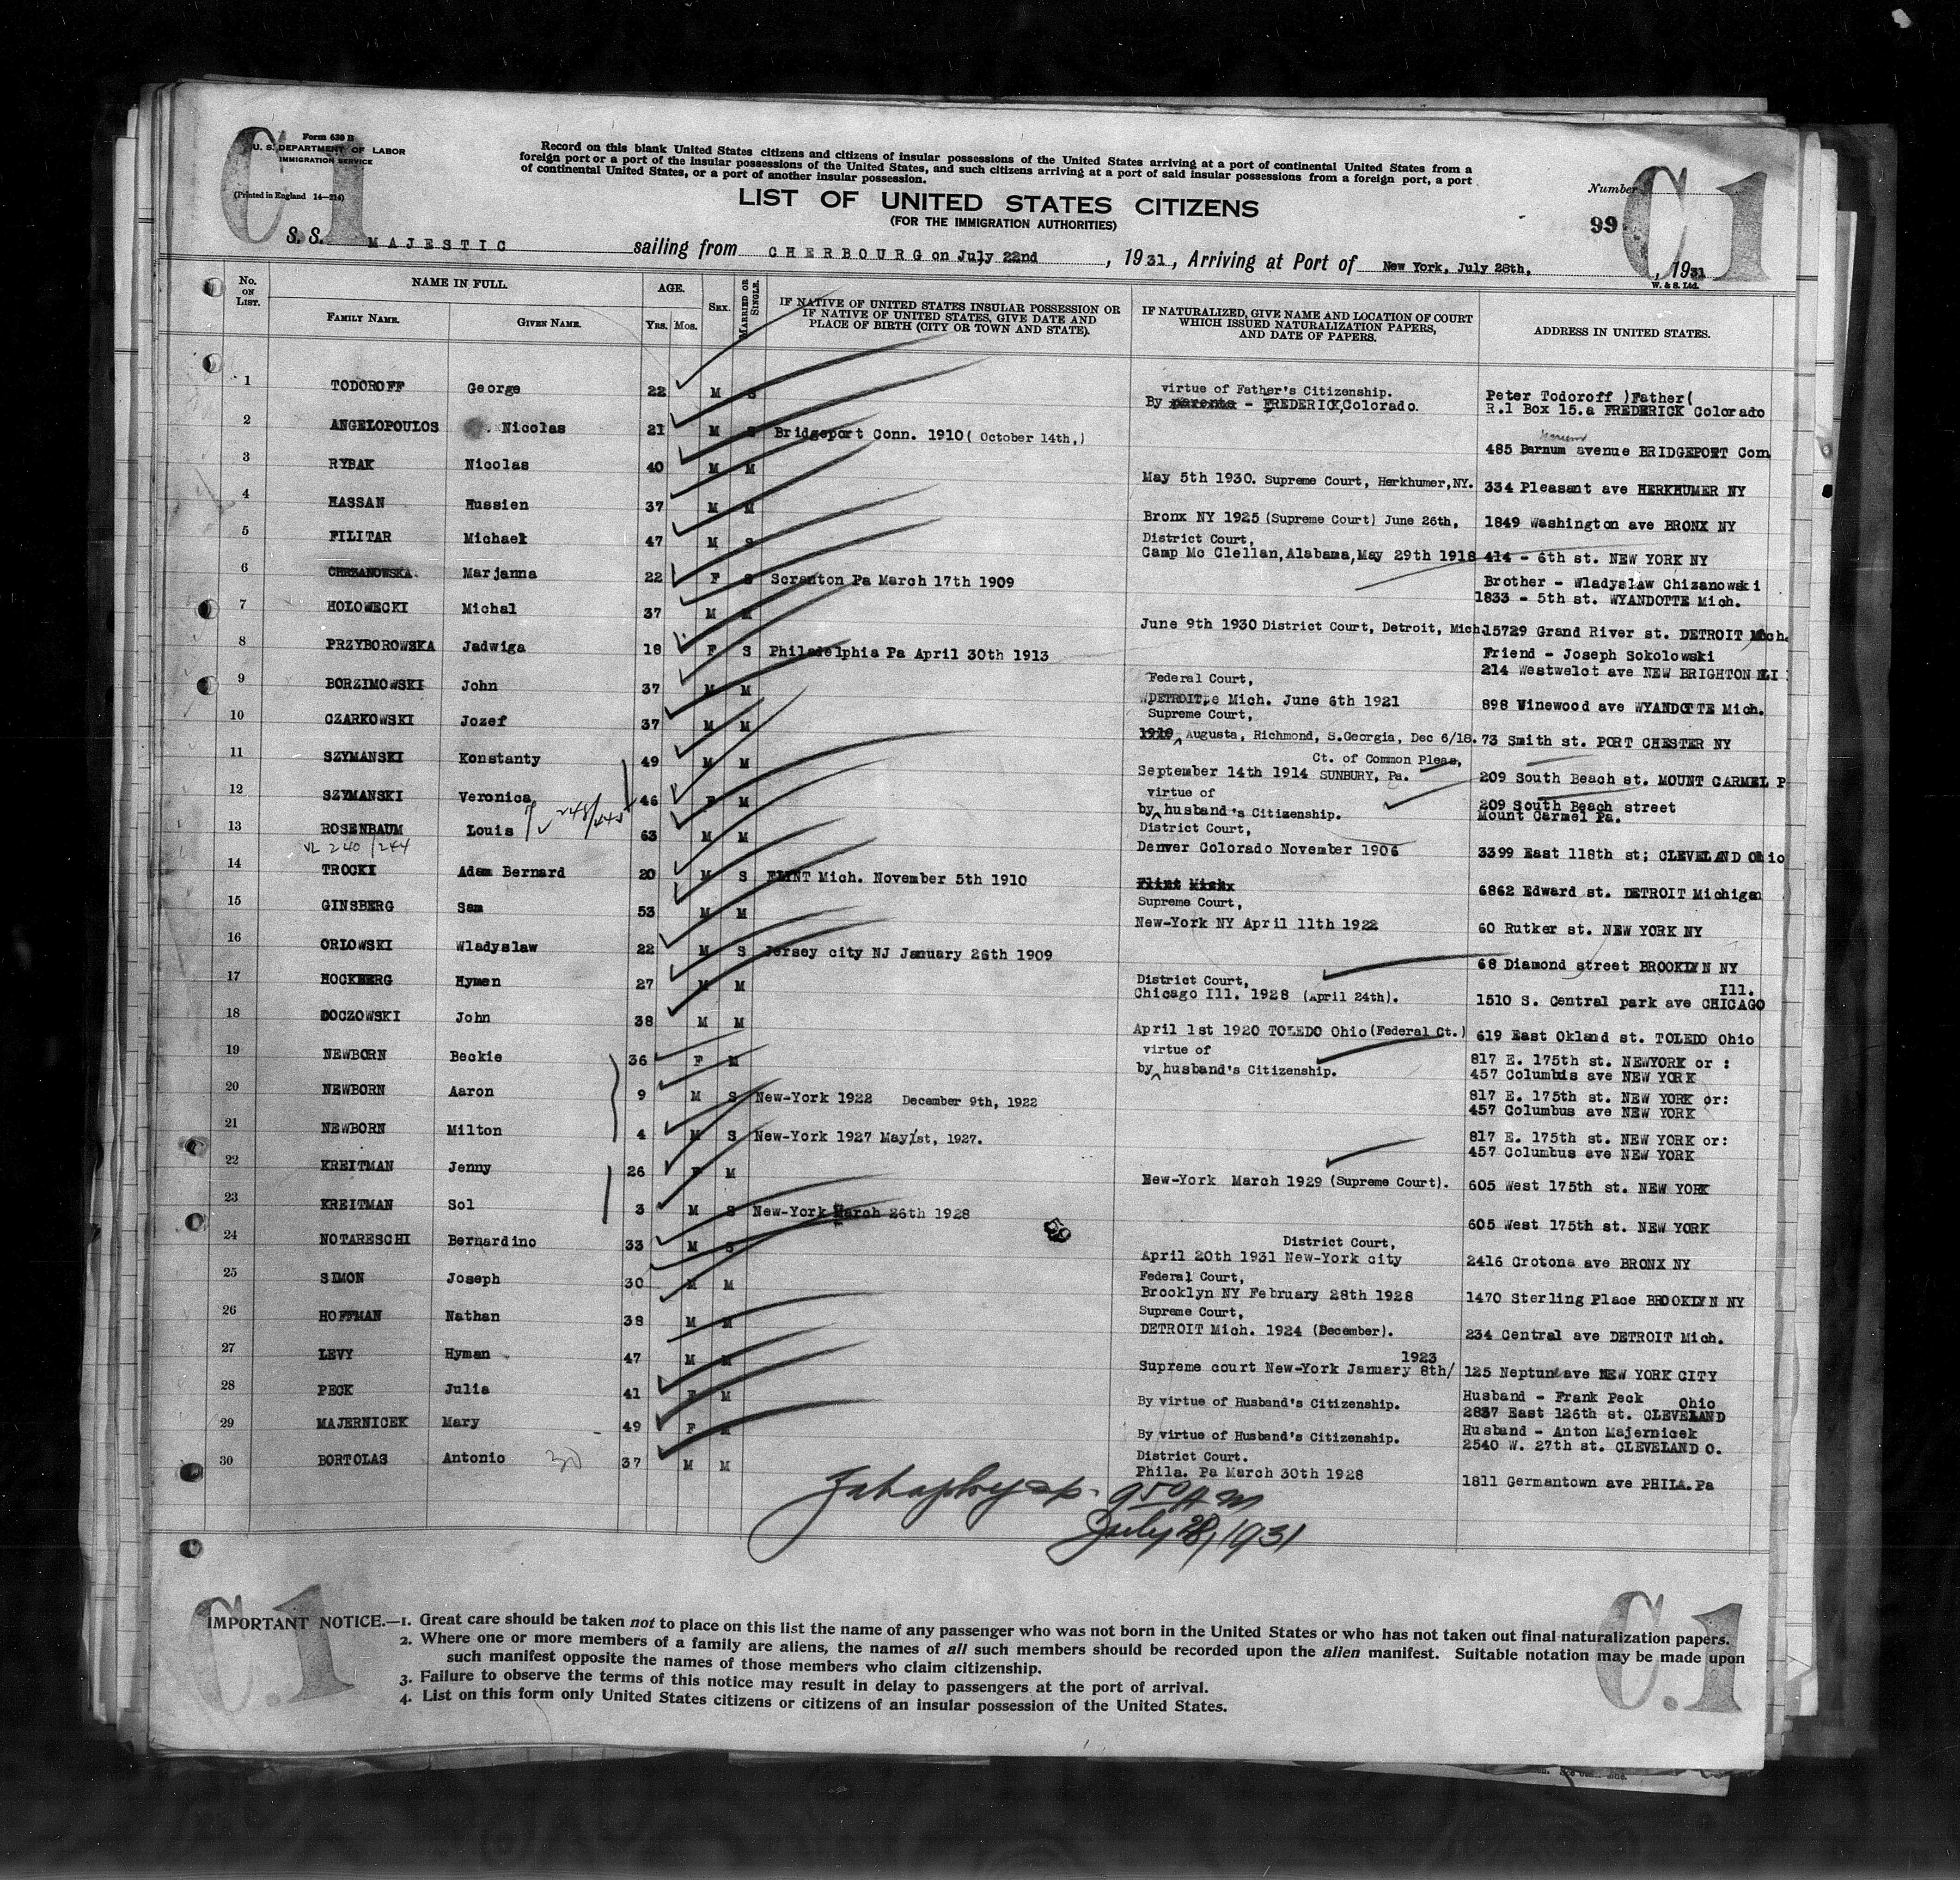 C1
Form 630 B
U. S. DEPARTMENT OF LABOR
IMMIGRATION SERVICE
(Printed in England 14—214)
Record on this blank United States citizens and citizens of insular possessions of the United States arriving at a port of continental United States from a
foreign port or a port of the insular possessions of the United States, and such citizens arriving at a port of said insular possessions from a foreign port, a port
of continental United States, or a port of another insular possession.
LIST OF UNITED STATES CITIZENS
(FOR THE IMMIGRATION AUTHORITIES)
Number
99
C1
S. S. MAJESTIC sailing from CHERBOURG on July 22nd, 1931, Arriving at Port of New York, July 28th, 1931
W. & S. Ltd.
No. ON LIST. NAME IN FULL. FAMILY NAME. GIVEN NAME. AGE. YRS. MOS. SEX. MARRIED OR SINGLE. IF NATIVE OF UNITED STATES INSULAR POSSESSION OR IF NATIVE OF UNITED STATES, GIVE DATE AND PLACE OF BIRTH (CITY OR TOWN AND STATE). IF NATURALIZED, GIVE NAME AND LOCATION OF COURT WHICH ISSUED NATURALIZATION PAPERS, AND DATE OF PAPERS. ADDRESS IN UNITED STATES.
1 TODOROFF George 22 M S virtue of Father's Citizenship. By parents - FREDERICK, Colorado. Peter Todoroff )Father( R.1 Box 15.a FREDERICK Colorado
2 ANGELOPOULOS . Nicolas 21 M S Bridgeport Conn. 1910( October 14th,) 485 Barnum avenue BRIDGEPORT Con
3 RYBAK Nicolas 40 M M May 5th 1930. Supreme Court, Herkhumer,NY. 334 Pleasant ave HERKHUMER NY
4 HASSAN Hussien 37 M M Bronx NY 1925 (Supreme Court) June 26th, 1849 Washington ave BRONX NY
5 FILITAR Michael 47 M S District Court, Camp Mc Clellan,Alabama,May 29th 1918 414 - 6th st. NEW YORK NY
6 CHRZANOWSKA Marjanna 22 F S Scranton Pa March 17th 1909 Brother - Wladyslaw Chizanowski 1833 - 5th st. WYANDOTTE Mich.
7 HOLOWECKI Michal 37 M M June 9th 1930 District Court, Detroit, Mich. 15729 Grand River st. DETROIT Mich.
8 PRZYBOROWSKA Jadwiga 18 F S Philadelphia Pa April 30th 1913 Friend - Joseph Sokolowski 214 Westwelot ave NEW BRIGHTON
9 BORZIMOWSKI John 37 M M Federal Court, DETROIT, Mich. June 6th 1921 898 Vinewood ave WYANDOTTE Mich.
10 CZARKOWSKI Jozef 37 M M Supreme Court, 1919 Augusta, Richmond, S.Georgia, Dec 6/18. 73 Smith st. PORT CHESTER NY
11 SZYMANSKI Konstanty 49 M M Ct. of Common Pleas, September 14th 1914 SUNBURY, Pa. 209 South Beach st. MOUNT CARMEL P
12 SZYMANSKI Veronica 46 F M virtue of by husband's Citizenship. 209 South Beach street Mount Carmel Pa.
13 ROSENBAUM Louis 63 M M District Court, Denver Colorado November 1906 3399 East 118th st; CLEVELAND Ohio
14 TROCKI Adam Bernard 20 M S FLINT Mich. November 5th 1910 Flint Mich 6862 Edward st. DETROIT Michigan
15 GINSBERG Sam 53 M M Supreme Court, New-York NY April 11th 1922 60 Rutker st. NEW YORK NY
16 ORLOWSKI Wladyslaw 22 M S Jersey city NJ January 26th 1909 68 Diamond street BROOKLYN NY
17 HOCKBERG Hymen 27 M M District Court, Chicago Ill. 1928 (April 24th). 1510 S. Central park ave CHICAGO Ill.
18 DOCZOWSKI John 38 M M April 1st 1920 TOLEDO Ohio(Federal Ct.) 619 East Okland st. TOLEDO Ohio
19 NEWBORN Beckie 36 F M virtue of by husband's Citizenship. 817 E. 175th st. NEWYORK or : 457 Columbus ave NEW YORK
20 NEWBORN Aaron 9 M S New-York 1922 December 9th, 1922 817 E. 175th st. NEW YORK or: 457 Columbus ave NEW YORK
21 NEWBORN Milton 4 M S New-York 1927 May 1st, 1927. 817 E. 175th st. NEW YORK or: 457 Columbus ave NEW YORK
22 KREITMAN Jenny 26 F M New-York March 1929 (Supreme Court). 605 West 175th st. NEW YORK
23 KREITMAN Sol 3 M S New-York March 26th 1928 605 West 175th st. NEW YORK
24 NOTARESCHI Bernardino 33 M S District Court, April 20th 1931 New-York city 2416 Crotona ave BRONX NY
25 SIMON Joseph 30 M M Federal Court, Brooklyn NY February 28th 1928 1470 Sterling Place BROOKLYN NY
26 HOFFMAN Nathan 38 M M Supreme Court, DETROIT Mich. 1924 (December). 234 Central ave DETROIT Mich.
27 LEVY Hyman 47 M M Supreme court New-York January 8th/ 1923 125 Neptun ave NEW YORK CITY
28 PECK Julia 41 F M By virtue of Husband's Citizenship. Husband - Frank Peck 2837 East 126th st. CLEVELAND Ohio
29 MAJERNICEK Mary 49 F M By virtue of Husband's Citizenship. Husband - Anton Majernicek 2540 W. 27th st. CLEVELAND O.
30 BORTOLAS Antonio 30 37 M M District Court. Phila. Pa March 30th 1928 1811 Germantown ave PHILA.Pa
9 50 AM
July 28, 1931
IMPORTANT NOTICE.—1. Great care should be taken not to place on this list the name of any passenger who was not born in the United States or who has not taken out final naturalization papers.
2. Where one or more members of a family are aliens, the names of all such members should be recorded upon the alien manifest. Suitable notation may be made upon
such manifest opposite the names of those members who claim citizenship.
3. Failure to observe the terms of this notice may result in delay to passengers at the port of arrival.
4. List on this form only United States citizens or citizens of an insular possession of the United States.
C.1
C.1